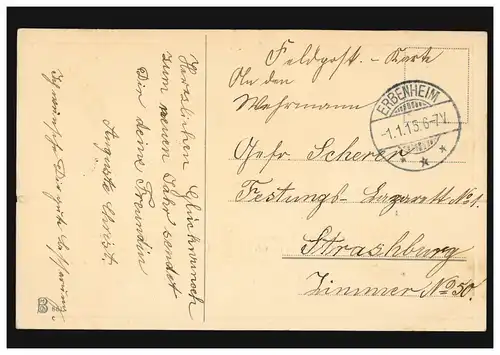 Herzlichen Glückwunsch
zum neuen Jahr sendet
Dir deine Freundin
Auguste Christ.
Ich wünsche Dir gute Besserung
Feldpost. - Karte
An den
Wehrmann
ERBENHEIM
-1.1.16.6-7V.
Gefr. Scherer
Festungs-Lazarett No 1.
Strashburg
Zimmer No 50.
B